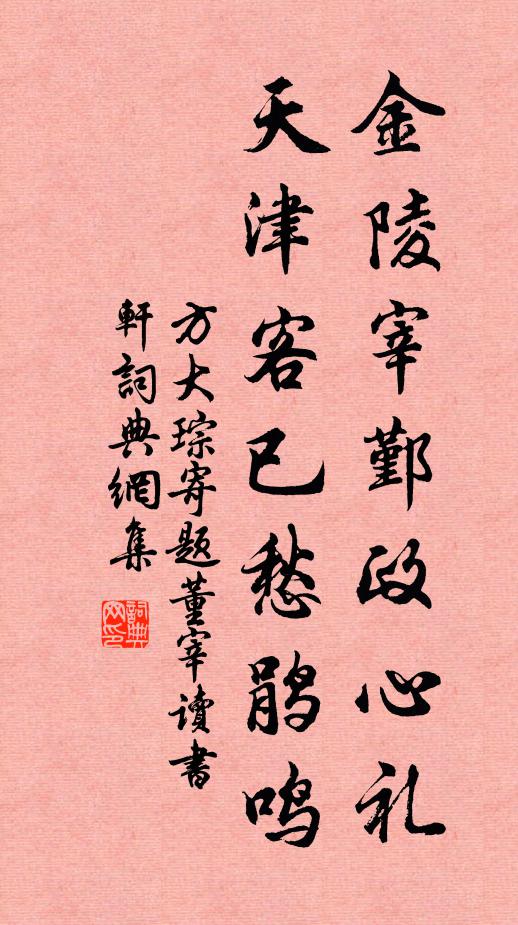 金陵宰鄞政心礼
天津客已愁鹃鸣
方大琮寄题董宰读书
軒詞典網集
詞典网印